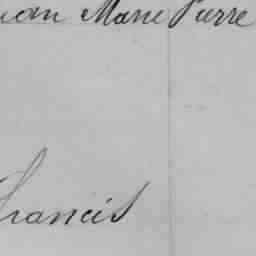 Marie Pierre
Francis